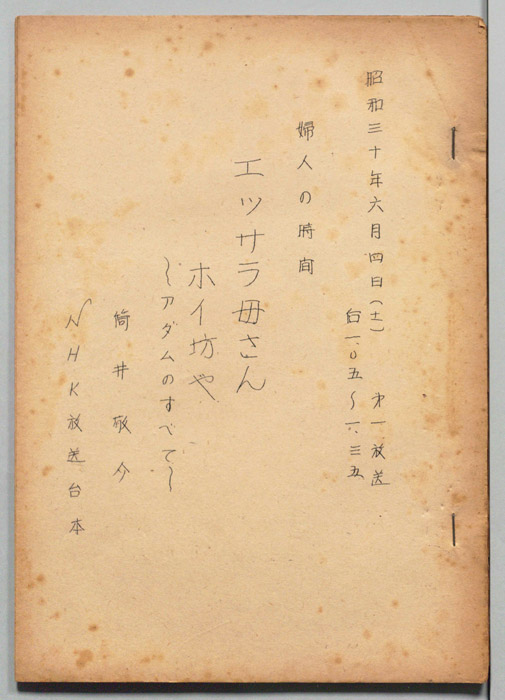 昭和三十年六月四日(土) 第一放送
后一.〇五〜一.三五
婦人の時间
エッサラ母さん
ホイ坊や
〜アダムのすべて〜
筒井敬介
NHK放送台本